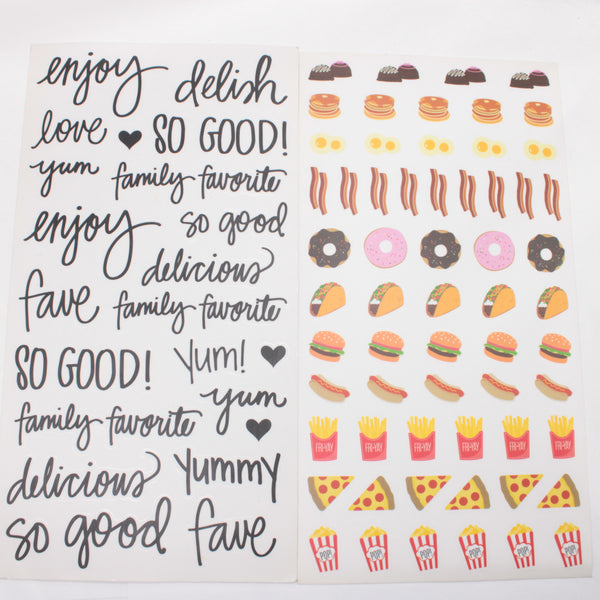 enjoy delish
love ♥ SO GOOD!
yum family favorite
enjoy so good
delicious
fave family favorite
SO GOOD! Yum! ♥
yum
family favorite ♥
delicious Yummy
so good fave
FRI-YAY FRI-YAY FRI-YAY FRI-YAY FRI-YAY FRI-YAY
POP! POP! POP! POP! POP! POP!